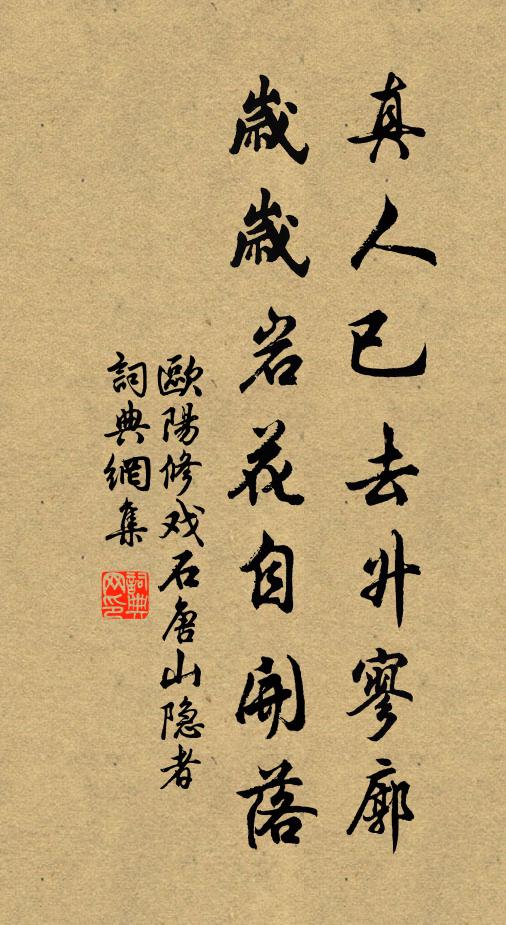 真人已去升寥廓
歲歲岩花自開落
歐陽修戏石唐山隐者
詞典網集
詞典网印